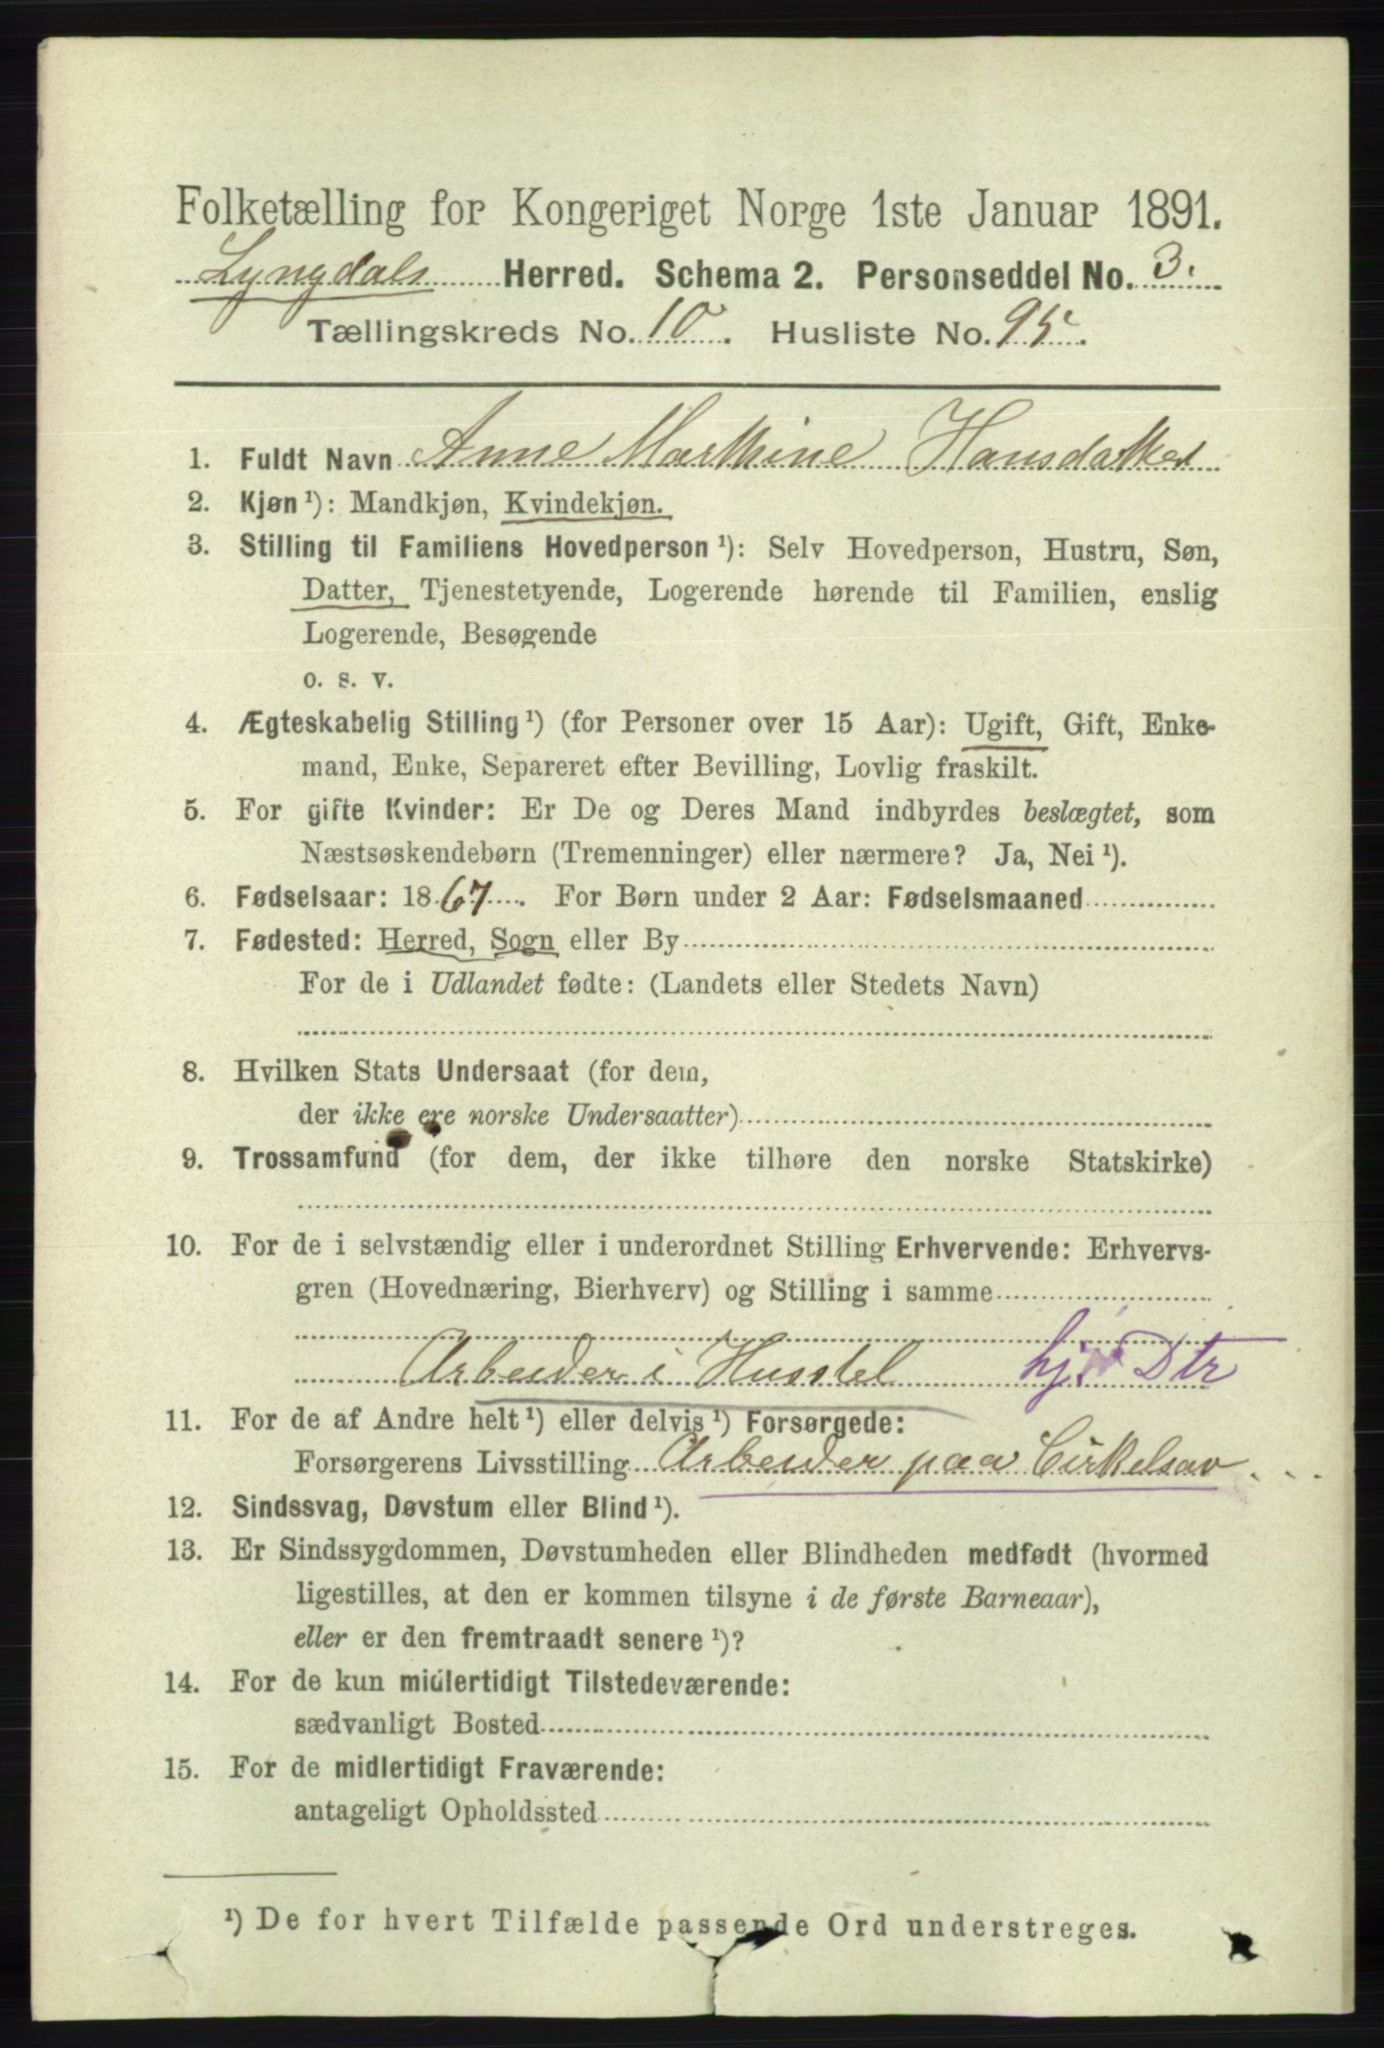 Folketælling for Kongeriget Norge 1ste Januar 1891.
Lyngdals Herred. Schema 2. Personseddel No. 3.
Tællingskreds No. 10. Husliste No. 95.
1. Fuldt Navn Anne Marthine Hansdatter
2. Kjøn ¹): Mandkjøn, Kvindekjøn.
3. Stilling til Familiens Hovedperson ¹): Selv Hovedperson, Hustru, Søn,
Datter, Tjenestetyende, Logerende hørende til Familien, enslig
Logerende, Besøgende
o. s. v.
4. Ægteskabelig Stilling ¹) (for Personer over 15 Aar): Ugift, Gift, Enke-
mand, Enke, Separeret efter Bevilling, Lovlig fraskilt.
5. For gifte Kvinder: Er De og Deres Mand indbyrdes beslægtet, som
Næstsøskendebørn (Tremenninger) eller nærmere? Ja, Nei ¹).
6. Fødselsaar: 1867. For Børn under 2 Aar: Fødselsmaaned
7. Fødested: Herred, Sogn eller By
For de i Udlandet fødte: (Landets eller Stedets Navn)
8. Hvilken Stats Undersaat (for dem,
der ikke ere norske Undersaatter)
9. Trossamfund (for dem, der ikke tilhøre den norske Statskirke)
10. For de i selvstændig eller i underordnet Stilling Erhvervende: Erhvervs-
gren (Hovednæring, Bierhverv) og Stilling i samme
Arbeider i Husstel hj. Dtr
11. For de af Andre helt ¹) eller delvis ¹) Forsørgede:
Forsørgerens Livsstilling Arbeider paa Cirkelsav
12. Sindssvag, Døvstum eller Blind ¹).
13. Er Sindssygdommen, Døvstumheden eller Blindheden medfødt (hvormed
ligestilles, at den er kommen tilsyne i de første Barneaar),
eller er den fremtraadt senere ¹)?
14. For de kun midlertidigt Tilstedeværende:
sædvanligt Bosted
15. For de midlertidigt Fraværende:
antageligt Opholdssted
¹) De for hvert Tilfælde passende Ord understreges.